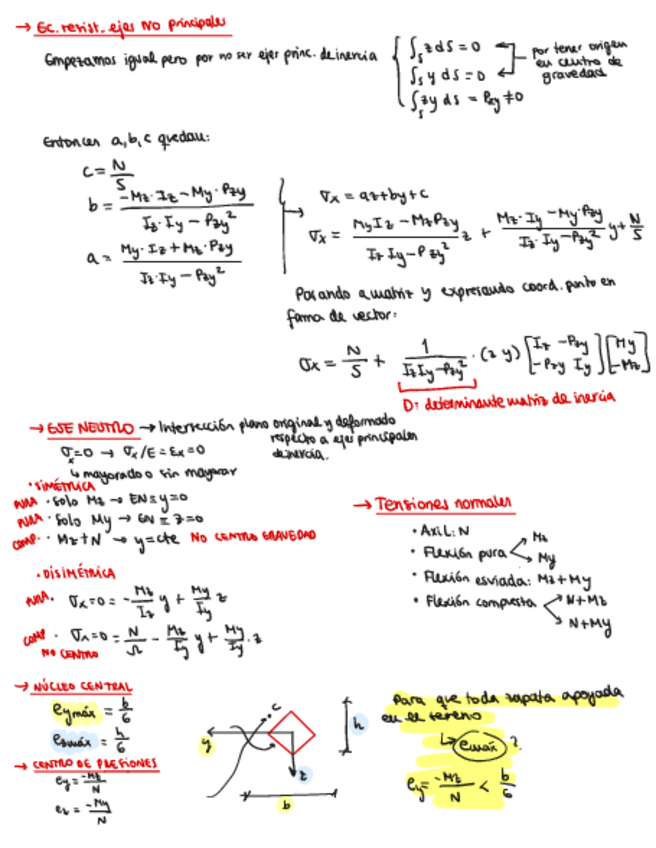 → Ec. resist. ejes NO principales
Empezamos igual pero por no ser ejes princ. de inercia { ∫s z ds = 0
∫s y ds = 0
∫s zy ds = Pzy ≠ 0
por tener origen
en centro de
gravedad
Entonces a, b, c quedan:
c = N/S
b = (-Mz·Iz - My·Pzy)/(Iz·Iy - Pzy²)
a = (My·Iz + Mz·Pzy)/(Iz·Iy - Pzy²)
σx = az+by+c
σx = (MyIz - MzPzy)/(IzIy - Pzy²) z + (Mz·Iy - My·Pzy)/(Iz·Iy - Pzy²) y + N/S
Pasando a matriz y expresando coord. punto en
forma de vector:
σx = N/S + 1/(IzIy - Pzy²) · (z y) [Iz -Pzy; -Pzy Iy] [My; -Mz]
D: determinante matriz de inercia
→ EJE NEUTRO → Intersección plano original y deformado
respecto a ejes principales
de inercia.
σx=0 → σx/E = εx = 0
↳ mayorado o sin mayorar
• SIMÉTRICA
PURA • Solo Mz → EN ≡ y=0
PURA • Solo My → EN ≡ z=0
COMP. • Mz+N → y=cte NO CENTRO GRAVEDAD
• DISIMÉTRICA
PURA. σx=0 = -Mz/Iz y + My/Iy z
COMP • σx=0 = N/Ω - Mz/Iy y + My/Iy · z
NO CENTRO
→ Tensiones normales
• Axil: N
• Flexión pura < Mz
My
• Flexión esviada: Mz+My
• Flexión compuesta < N+Mz
N+My
→ NÚCLEO CENTRAL
eymáx = b/6
ezmáx = h/6
→ CENTRO DE PRESIONES
ey = -Mz/N
ez = -My/N
c
y
z
h
b
Para que toda zapata apoyada
en el terreno
↳ emáx ?
ey = -Mz/N < b/6